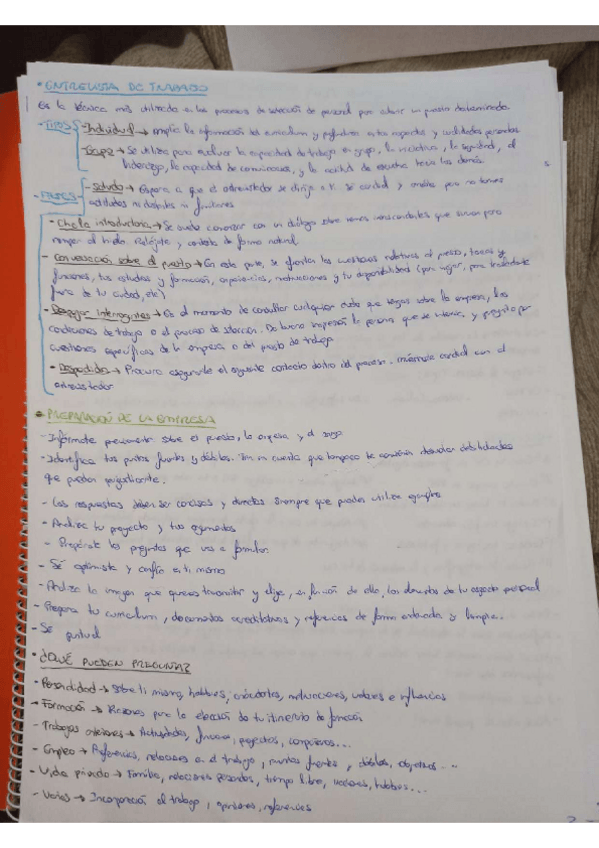 • ENTREVISTA DE TRABAJO
Es la técnica más utilizada en los procesos de selección de personal para cubrir un puesto determinado.
- TIPOS - Individual → amplía la información del curriculum y profundiza en tus aspectos y cualidades personales
- Grupal → Se utiliza para evaluar la capacidad de trabajo en grupo, la iniciativa, la seguridad, el
liderazgo, la capacidad de comunicarse, y la actitud de escucha hacia los demás.
- FASES - Saludo → Espera a que el entrevistador se dirija a ti. Sé cordial y amable pero no tomes
actitudes ni distantes ni familiares
- Charla introductoria → Se suele comenzar con un diálogo sobre temas intrascendentes que sirven para
romper el hielo. Relájate y contesta de forma natural
- Conversación sobre el puesto → En esta parte, se afrontan las cuestiones relativas al puesto, tareas y
funciones, tus estudios y formación, experiencias, motivaciones y tu disponibilidad (para viajar, para trasladarte
fuera de tu ciudad, etc)
- Despejar interrogantes → Es el momento de consultar cualquier duda que tengas sobre la empresa, las
condiciones de trabajo o el proceso de selección. Da buena impresión la persona que se interesa y pregunta por
cuestiones específicas de la empresa o del puesto de trabajo
• Despedida → Procura asegurarte el siguiente contacto dentro del proceso. muéstrate cordial con el
entrevistador
• PREPARACIÓN DE LA EMPRESA
- Infórmate previamente sobre el puesto, la empresa y el cargo
- Identifica tus puntos fuertes y débiles. Ten en cuenta que tampoco te conviene desvelar debilidades
que puedan perjudicarte.
- Las respuestas deben ser concisas y directas siempre que puedas utiliza ejemplos
- Analiza tu proyecto y tus argumentos
- Prepárate las preguntas que vas a formular.
- Sé optimista y confía en ti mismo
- Analiza la imagen que quieres transmitir y elige, en función de ello, los elementos de tu aspecto personal
- Prepara tu curriculum, documentos acreditativos y referencias de forma ordenada y limpia.
- Sé puntual
• ¿QUÉ PUEDEN PREGUNTAR?
- Personalidad → Sobre ti mismo, hobbies, anécdotas, motivaciones, valores e influencias
- Formación → Razones para la elección de tu itinerario de formación
- Trabajos anteriores → Actividades, funciones, proyectos, compañeros...
- Empleo → Referencias, relaciones en el trabajo, puntos fuertes, débiles, objetivos...
- Vida privada → Familia, relaciones personales, tiempo libre, vacaciones, hobbies...
- Varios → Incorporación al trabajo, opiniones, referencias